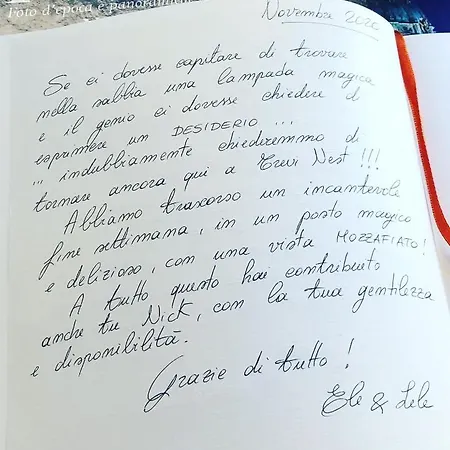 Foto d'epoca e panoramiche
Novembre 2020
Se ci dovesse capitare di trovare
nella sabbia una lampada magica
e il genio ci dovesse chiedere di
esprimere un DESIDERIO ...
... indubbiamente chiederemmo di
tornare ancora qui a Trevi Nest !!!
Abbiamo trascorso un incantevole
fine settimana, in un posto magico
e delizioso, con una vista MOZZAFIATO!
A tutto questo hai contribuito
anche tu Nick, con la tua gentilezza
e disponibilità.
Grazie di tutto !
Ele & Lele